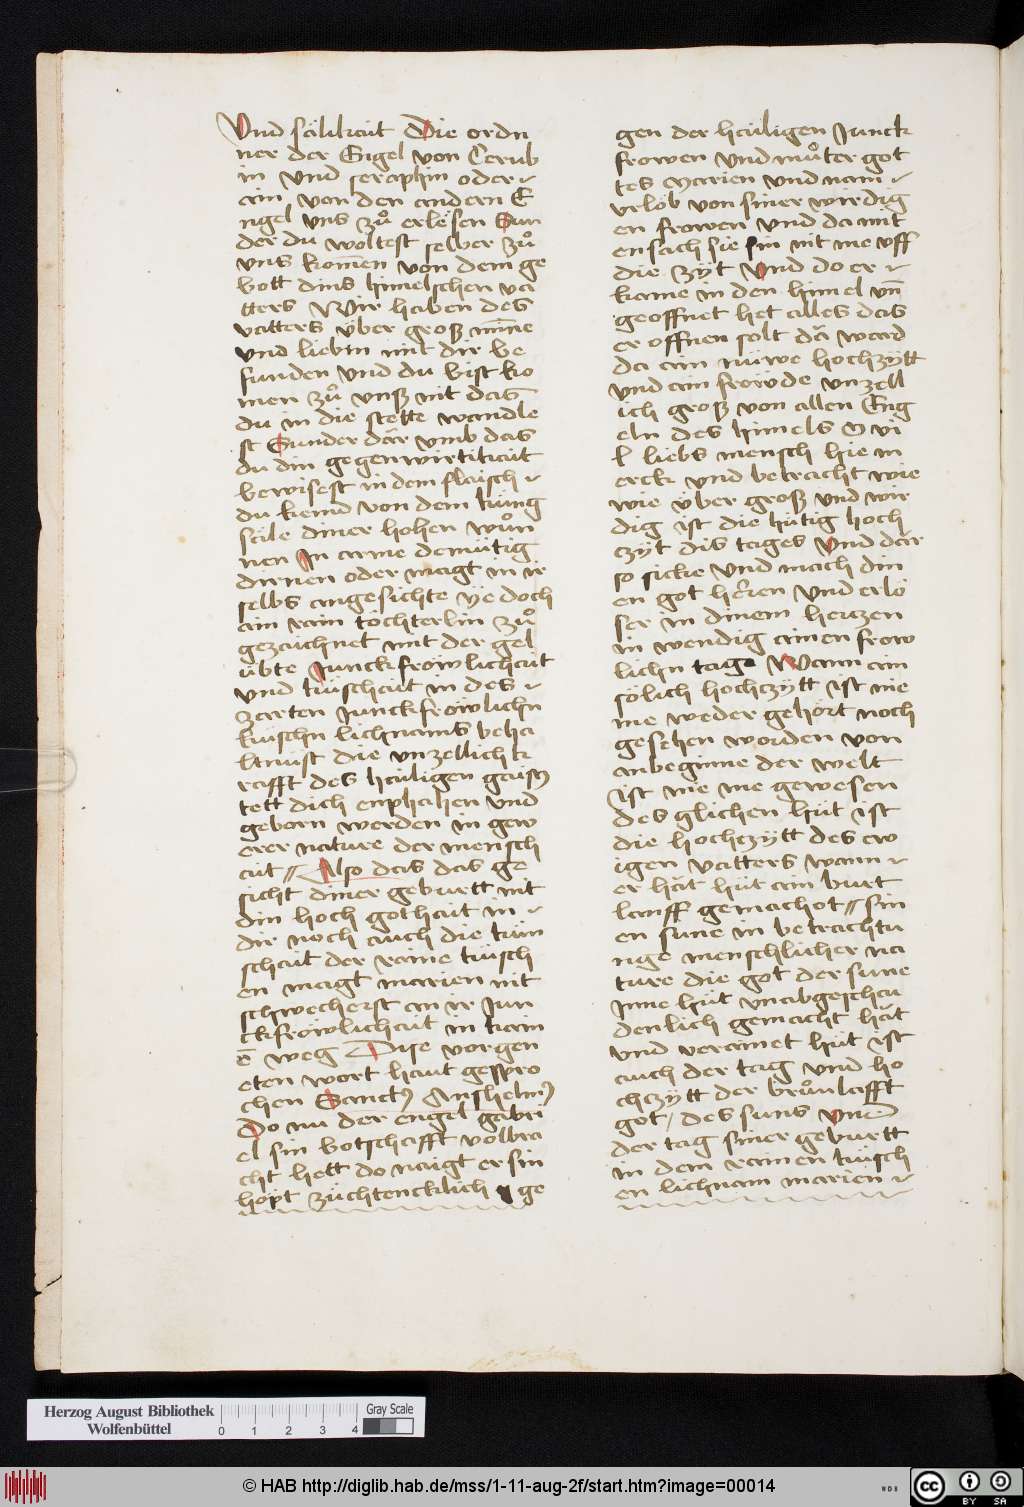 Vnd sälikait Die ordn
ner der Engel von Cerub
in vnd seraphin oder
ain von den andern E
ngel vns zů erlösen Sun
der du woltest selber zů
vns komen von dem ge
bott dins himelschen va
tters Wir haben des
vatters über groß minne
vnd liebin mit dir be
funden vnd du bist ko
men zů vnß nit das
du in die stette wandle
st Sunder där vmb das
du din gegenwirtikait
bewisest in dem flaisch
du kemd von dem küng
säle diner hohen wůn
nen In arme demütig
dirnen oder magt in ir
selbs angesichte ye doch
ain rain töchterlin zů
gezaichnet mit der gel
übte Junckfröwlichait
vnd küschait in des
zarten Junckfröwlichn
küschn lichnams beha
ltnust die vnzellich k
rafft des hailigen gaisz
tett dich enphahen vnd
geborn werden in gew
erer nature der mensch
ait Also das das ge
sicht diner geburtt nit
din hoch gothait in
dir noch auch die küin
schait der raine küsch
en magt marien nit
schwecherst an ir Jun
ckfröwlichait in kain
ē weg Dise vorgen
eten wort haut gespro
chen Sanctꝯ Anshelmꝯ
Do nu der engel gabri
el sin botschafft volbra
cht hett do naigt er sin
höpt züchtencklich ge
gen der hailigen Junck
frowen vnd můter got
tes Marien vnd nam
vrlob von siner wirdig
en frowen vnd da mit
en sach sie sin nit me vff
die zÿt Vnd do er
kame in den himel vn̄
geoffnet het alles das
er offnen solt dā ward
da ain nüwe hochzÿtt
vnd ain fröwde vnzell
ich groß von allen Eng
eln des himels O vi
l liebs mensch hie in
erck vnd betracht wie
wie über groß vnd wir
dig ist die hütig hoch
czÿt dis tages Vnd där
so sicke vnd mach din
en got herren vnd erlö
ser in dinem herczen
in wendig ainen frow
lichn tag Wann ain
sölich hochzÿtt ist nie
me weder gehört noch
gesehen worden von
anbeginne der welt
ist nie me gewesen
des glichen hüt ist
die hochczÿtt des ew
igen vatters wann
er hät hüt ain burt
lauff gemachot sin
en sune in betrachtu
nge menschlicher na
ture die got der sune
Jme hüt vnabgeschai
denlich gemacht hät
vnd verainet hüt ist
auch der tag vnd ho
chczÿtt der brůnlafft
got des suns Vnd
der tag siner geburtt
in dem rainen küsch
en lichnam marien
Herzog August Bibliothek
Wolfenbüttel
0 1 2 3 4
Gray Scale
© HAB http://diglib.hab.de/mss/1-11-aug-2f/start.htm?image=00014
WDB
cc BY SA